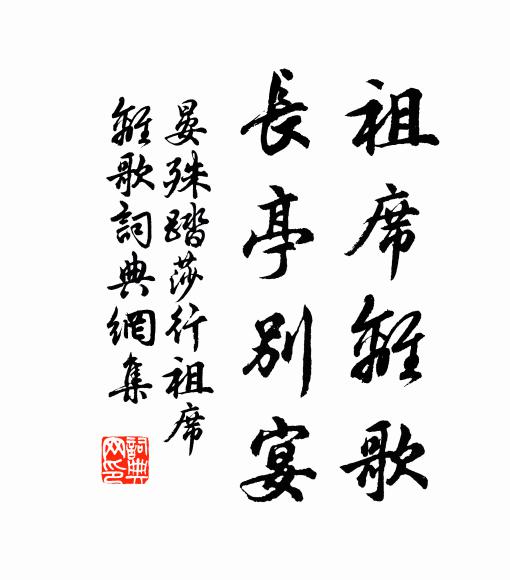 祖席離歌
長亭別宴
晏殊踏莎行祖席
離歌詞典網集
詞典網印